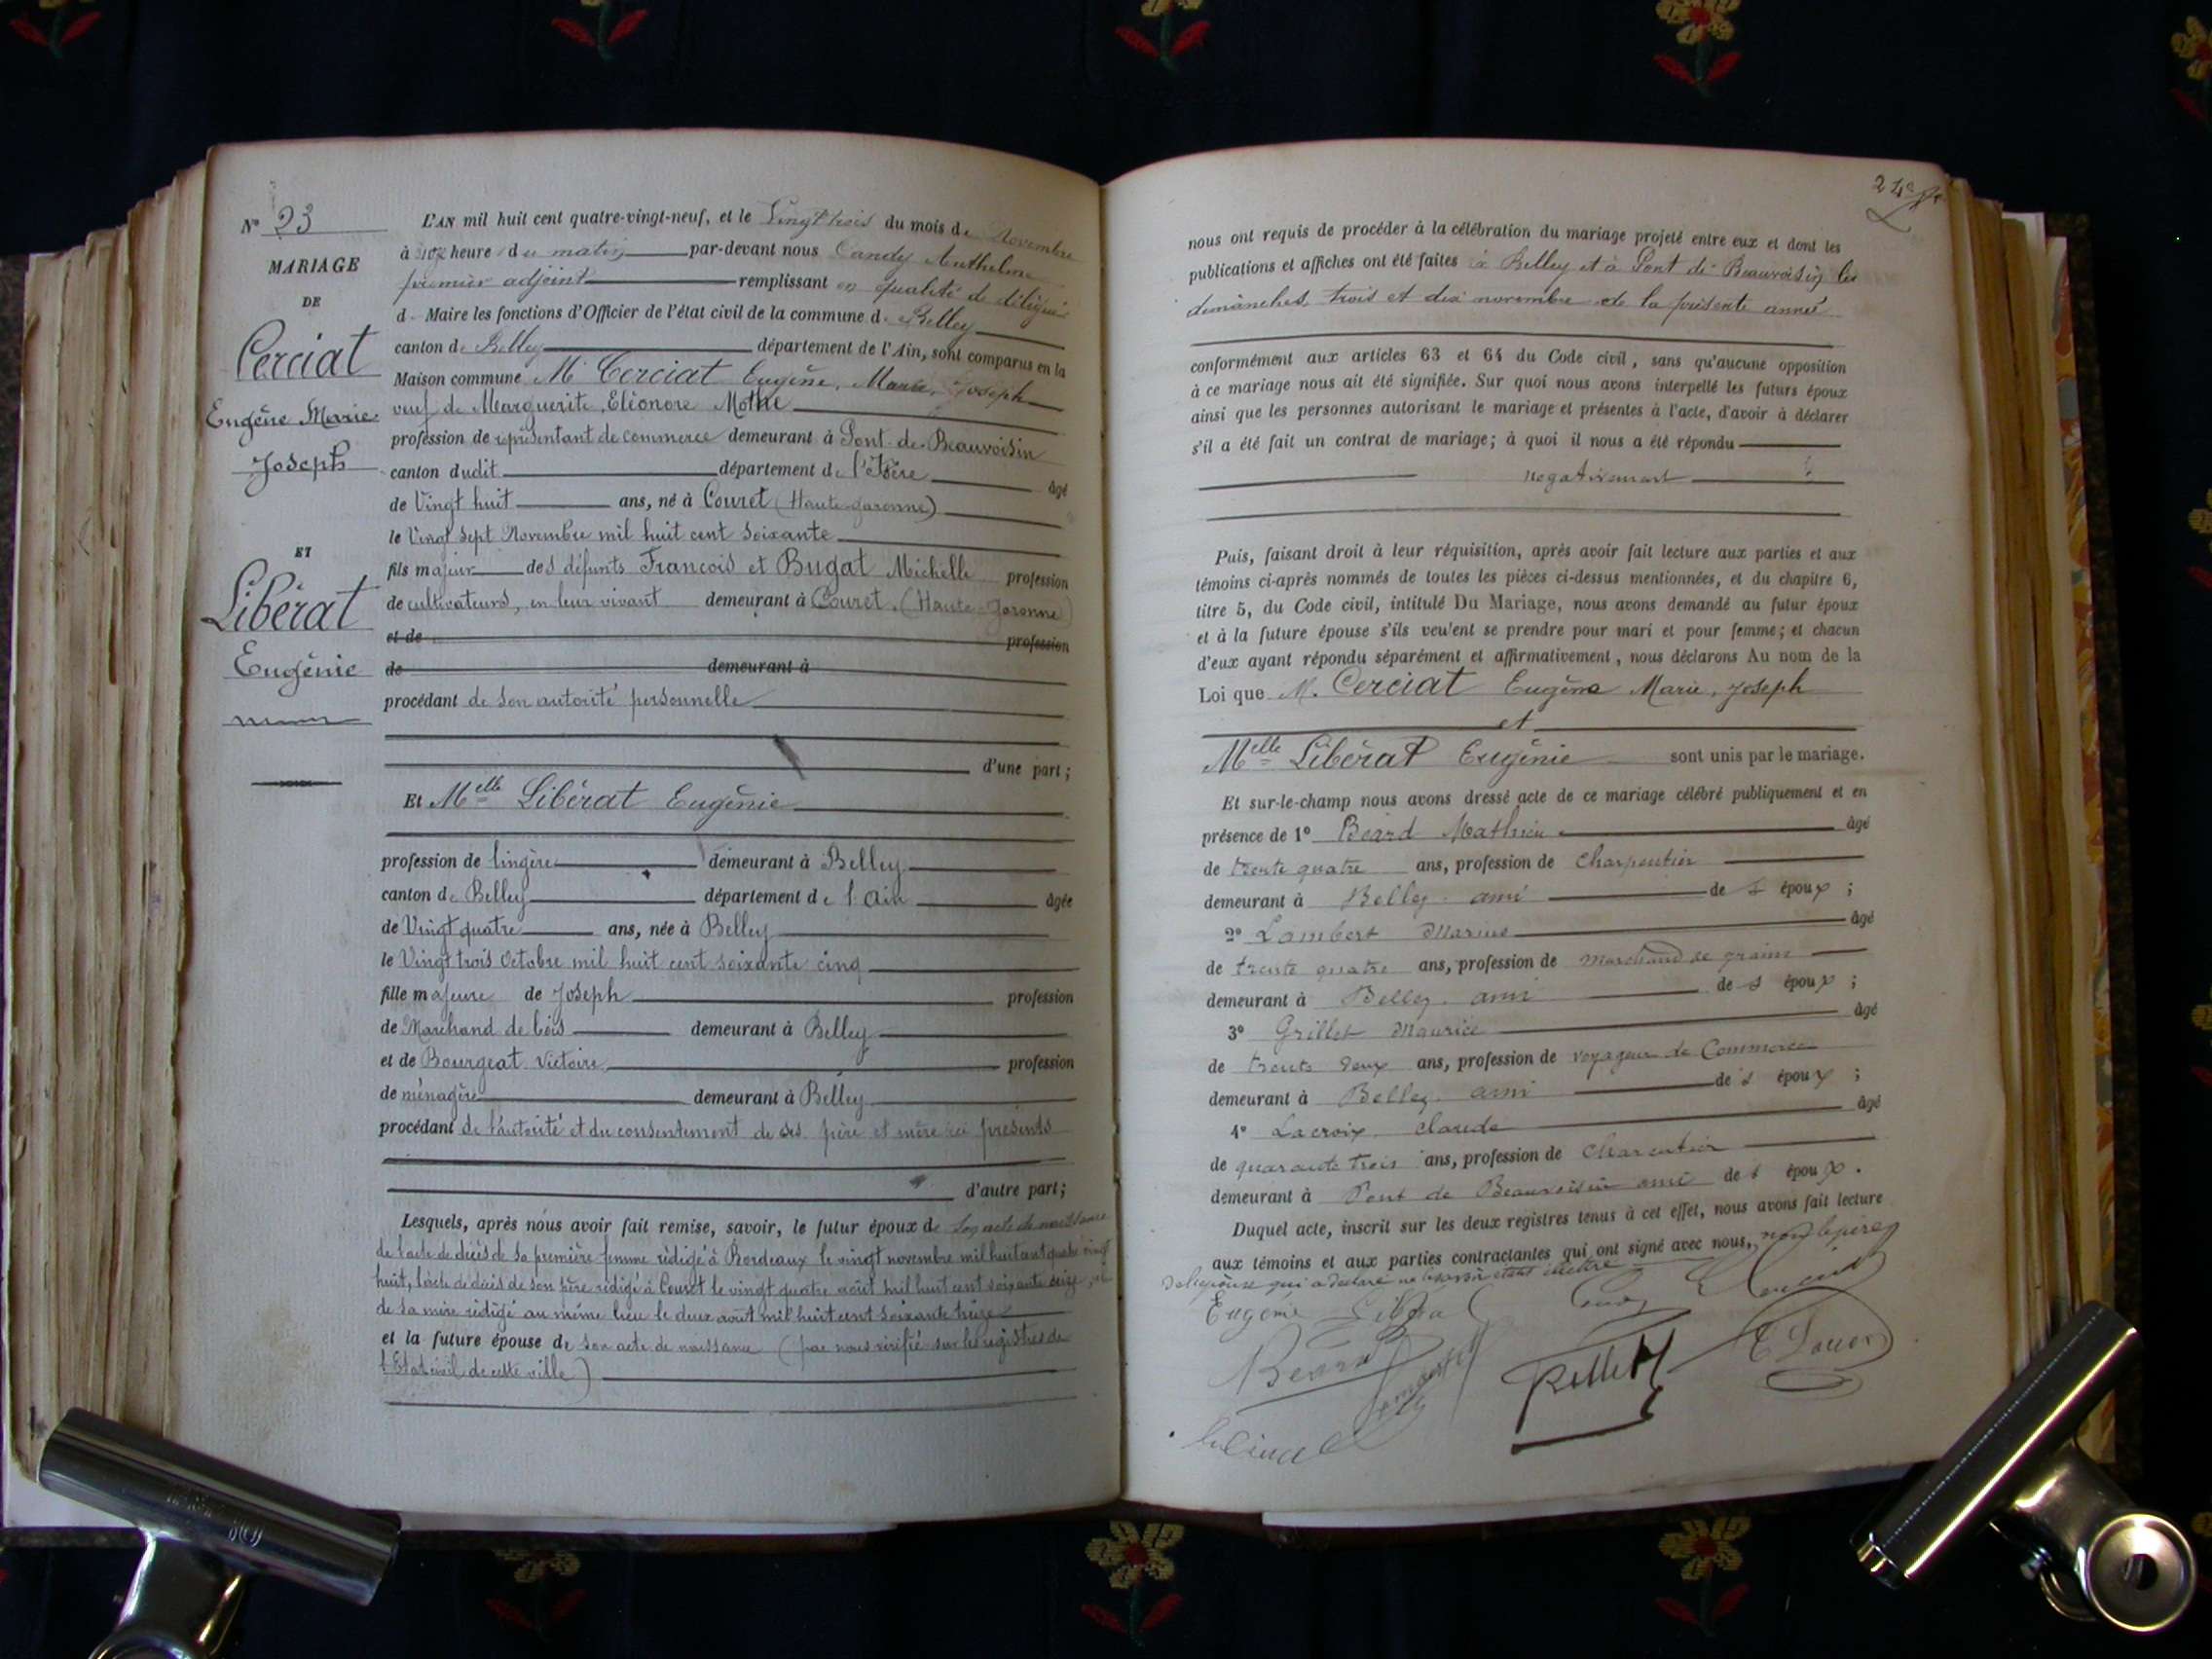 N° 23
MARIAGE
DE
Cerciat
Eugène Marie
Joseph
ET
Libérat
Eugénie
L'AN mil huit cent quatre-vingt-neuf, et le Vingt trois du mois de Novembre
à heure du matin par-devant nous Candy Anthelme
premier adjoint remplissant en qualité de délégué
d Maire les fonctions d'Officier de l'état civil de la commune d Belley
canton de Belley département de l'Ain, sont comparus en la
Maison commune M Cerciat Eugène, Marie, Joseph
veuf de Marguerite Eléonore Mothe
profession de représentant de commerce demeurant à Pont-de-Beauvoisin
canton dudit département de l'Isère âgé
de Vingt huit ans, né à Couret (Haute-Garonne)
le Vingt sept Novembre mil huit cent soixante
fils majeur des défunts François et Bugat Michelle profession
de cultivateurs, en leur vivant demeurant à Couret. (Haute-Garonne)
et de profession
de demeurant à
procédant de son autorité personnelle
d'une part;
Et Melle Libérat Eugénie
profession de lingère demeurant à Belley
canton de Belley département de l'Ain âgée
de Vingt quatre ans, née à Belley
le Vingt trois Octobre mil huit cent soixante cinq
fille majeure de Joseph profession
de Marchand de bois demeurant à Belley
et de Bourgeat Victoire profession
de ménagère demeurant à Belley
procédant de l'autorité et du consentement de ses père et mère ici présents
d'autre part;
Lesquels, après nous avoir fait remise, savoir, le futur époux de son acte de naissance
de l'acte de décès de sa première femme rédigé à Bordeaux le vingt novembre mil huit cent quatre vingt
huit, l'acte de décès de son père rédigé à Couret le vingt quatre août mil huit cent soixante et
de sa mère rédigé au même lieu le deux août mil huit cent soixante treize
et la future épouse de son acte de naissance (par nous vérifié sur les registres de
l'Etat civil de cette ville)
24
nous ont requis de procéder à la célébration du mariage projeté entre eux et dont les
publications et affiches ont été faites à Belley et à Pont de Beauvoisin les
dimanches trois et dix novembre de la présente année
conformément aux articles 63 et 64 du Code civil, sans qu'aucune opposition
à ce mariage nous ait été signifiée. Sur quoi nous avons interpellé les futurs époux
ainsi que les personnes autorisant le mariage et présentes à l'acte, d'avoir à déclarer
s'il a été fait un contrat de mariage; à quoi il nous a été répondu
negativement
Puis, faisant droit à leur réquisition, après avoir fait lecture aux parties et aux
témoins ci-après nommés de toutes les pièces ci-dessus mentionnées, et du chapitre 6,
titre 5, du Code civil, intitulé Du Mariage, nous avons demandé au futur époux
et à la future épouse s'ils veulent se prendre pour mari et pour femme; et chacun
d'eux ayant répondu séparément et affirmativement, nous déclarons Au nom de la
Loi que M. Cerciat Eugène Marie, Joseph
et
Melle Libérat Eugénie sont unis par le mariage.
Et sur-le-champ nous avons dressé acte de ce mariage célébré publiquement et en
présence de 1° Béard Mathieu âgé
de trente quatre ans, profession de Charpentier
demeurant à Belley ami de s époux ;
2° Lambert Marius âgé
de trente quatre ans, profession de marchand de grains
demeurant à Belley. ami de s époux ;
3° Grillet Maurice âgé
de trente deux ans, profession de voyageur de Commerce
demeurant à Belley. ami de s époux ;
4° Lacroix Claude âgé
de quarante trois ans, profession de Charcutier
demeurant à Pont de Beauvoisin ami de s époux.
Duquel acte, inscrit sur les deux registres tenus à cet effet, nous avons fait lecture
aux témoins et aux parties contractantes qui ont signé avec nous, non le père
de l'épouse qui a déclaré ne le savoir étant illettré
Eugénie Libéra Candy
Beard